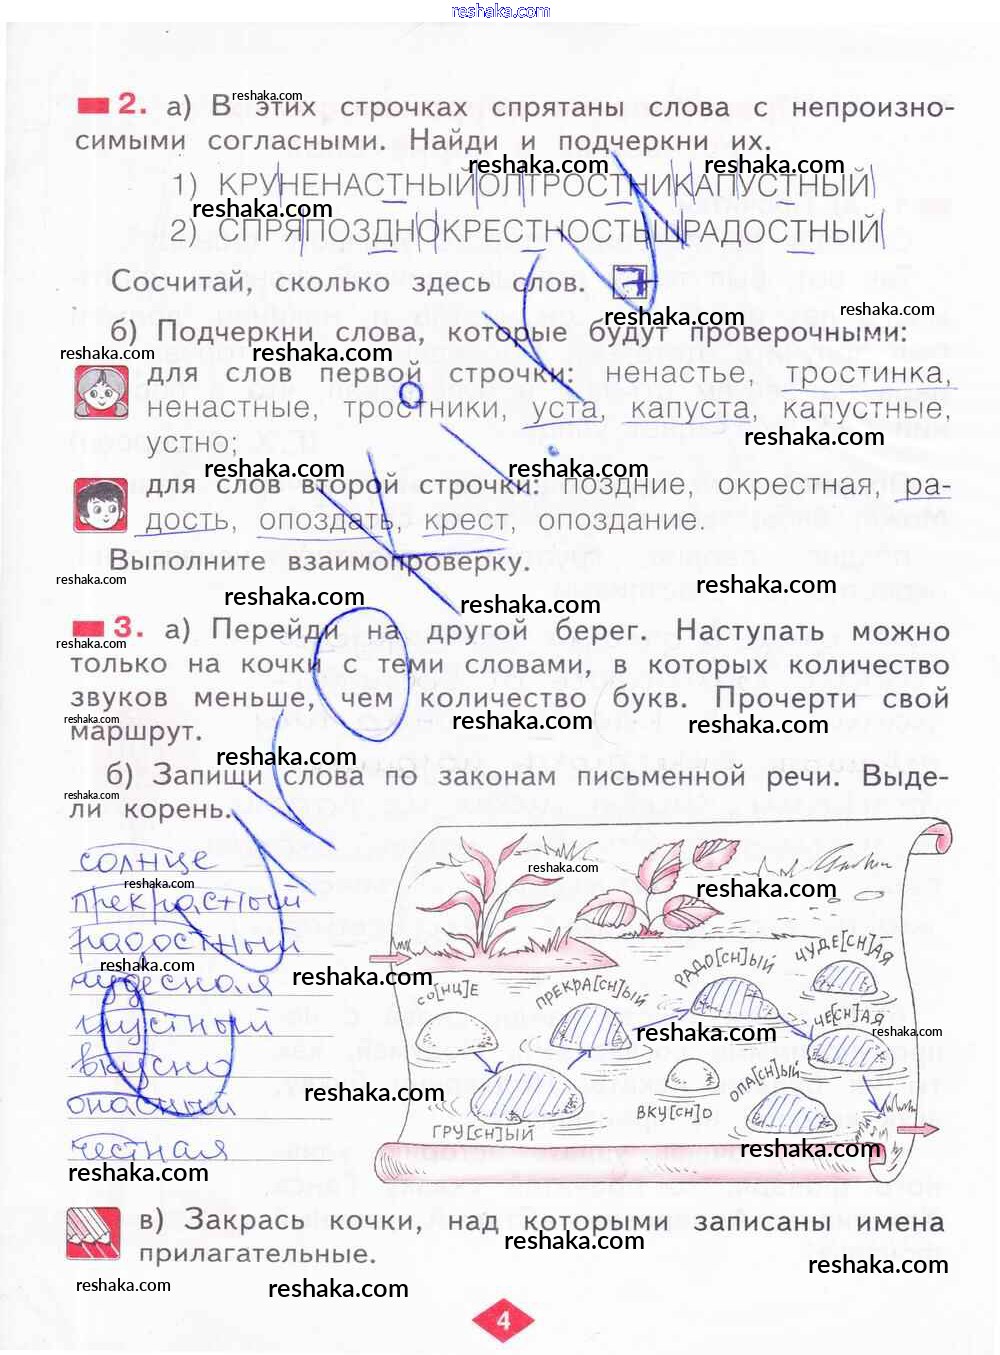 reshaka.com
2. а) В этих строчках спрятаны слова с непроизно-
симыми согласными. Найди и подчеркни их.
1) КРУНЕНАСТНЫЙОЛТРОСТНИКАПУСТНЫЙ
2) СПРЯПОЗДНОКРЕСТНОСТЬШРАДОСТНЫЙ
Сосчитай, сколько здесь слов. 7
б) Подчеркни слова, которые будут проверочными:
для слов первой строчки: ненастье, тростинка,
ненастные, тростники, уста, капуста, капустные,
устно;
для слов второй строчки: поздние, окрестная, ра-
дость, опоздать, крест, опоздание.
Выполните взаимопроверку.
3. а) Перейди на другой берег. Наступать можно
только на кочки с теми словами, в которых количество
звуков меньше, чем количество букв. Прочерти свой
маршрут.
б) Запиши слова по законам письменной речи. Выде-
ли корень.
солнце
прекрасный
радостный
чудесная
грустный
вкусно
опасный
честная
СО[Н]ЦЕ
ПРЕКРА[СН]ЫЙ
РАДО[СН]ЫЙ
ЧУДЕ[СН]АЯ
ЧЕ[СН]АЯ
ГРУ[СН]ЫЙ
ВКУ[СН]О
ОПА[СН]ЫЙ
в) Закрась кочки, над которыми записаны имена
прилагательные.
4